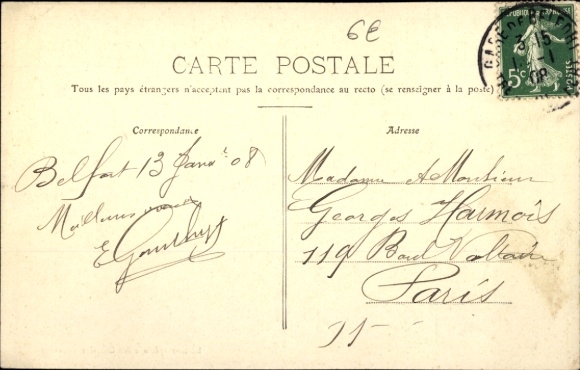 6E
CARTE POSTALE
Tous les pays étrangers n'acceptent pas la correspondance au recto (se renseigner à la poste)
Correspondance
Belfort 13 Janv. 08
Meilleurs
E
Adresse
Madame & Monsieur
Georges Harmois
119 Bard Voltaire
Paris
5c
POSTES